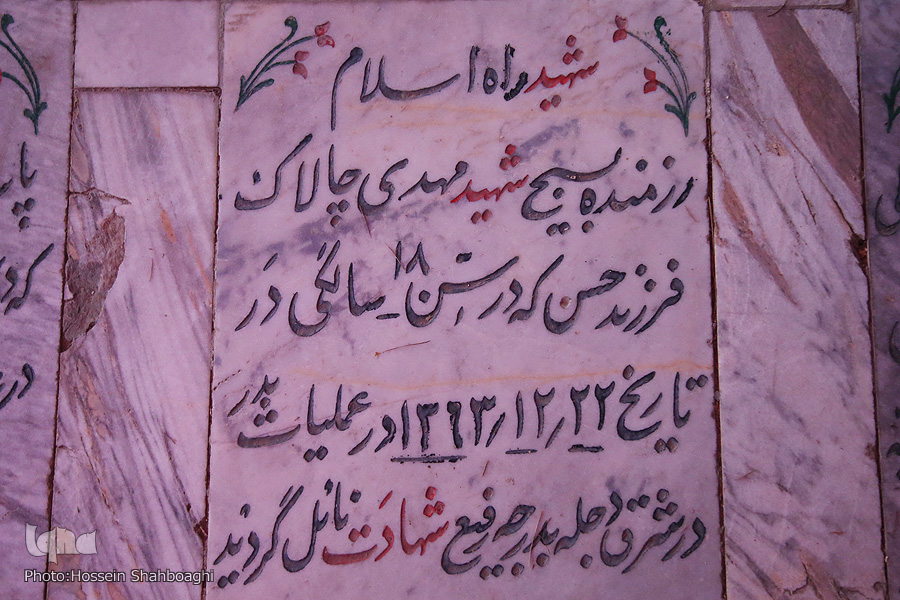 شهید راه اسلام
رزمنده بسیج شهید مهدی چالاک
فرزند حسن که در سن ۱۸ سالگی در
تاریخ ۲۲/۱۲/۱۳۶۳ در عملیات بدر
در شرق دجله بدرجه رفیع شهادت نائل گردید
iqna
Photo:Hossein Shahboaghi